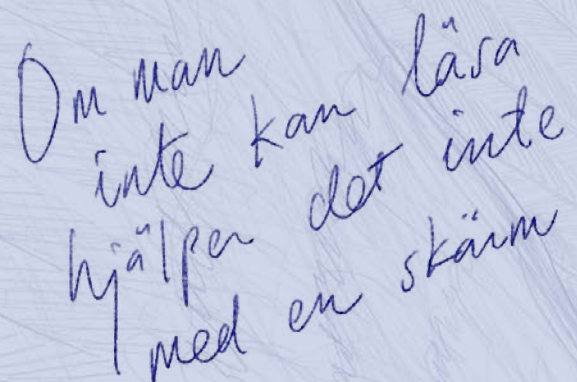 Om man
inte kan läsa
hjälper det inte
med en skärm